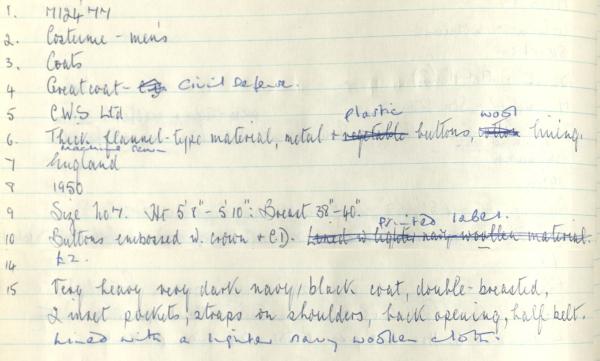 1. M124'77
2. Costume - men's
3. Coats
4 Greatcoat - Civil Defence.
5 C.W.S Ltd
plastic wool
6. Thick flannel-type material, metal + vegetable buttons, cotton lining.
machine sewn
7 England
8 1950
9 Size No 7. Ht 5'8" - 5'10": Breast 38"-40".
printed label.
10 Buttons embossed w. crown + CD. Lined w lighter navy woollen material.
14 £2.
15 Very heavy very dark navy/black coat, double-breasted,
2 inset pockets, straps on shoulders, back opening, half belt.
Lined with a lighter navy woollen cloth.